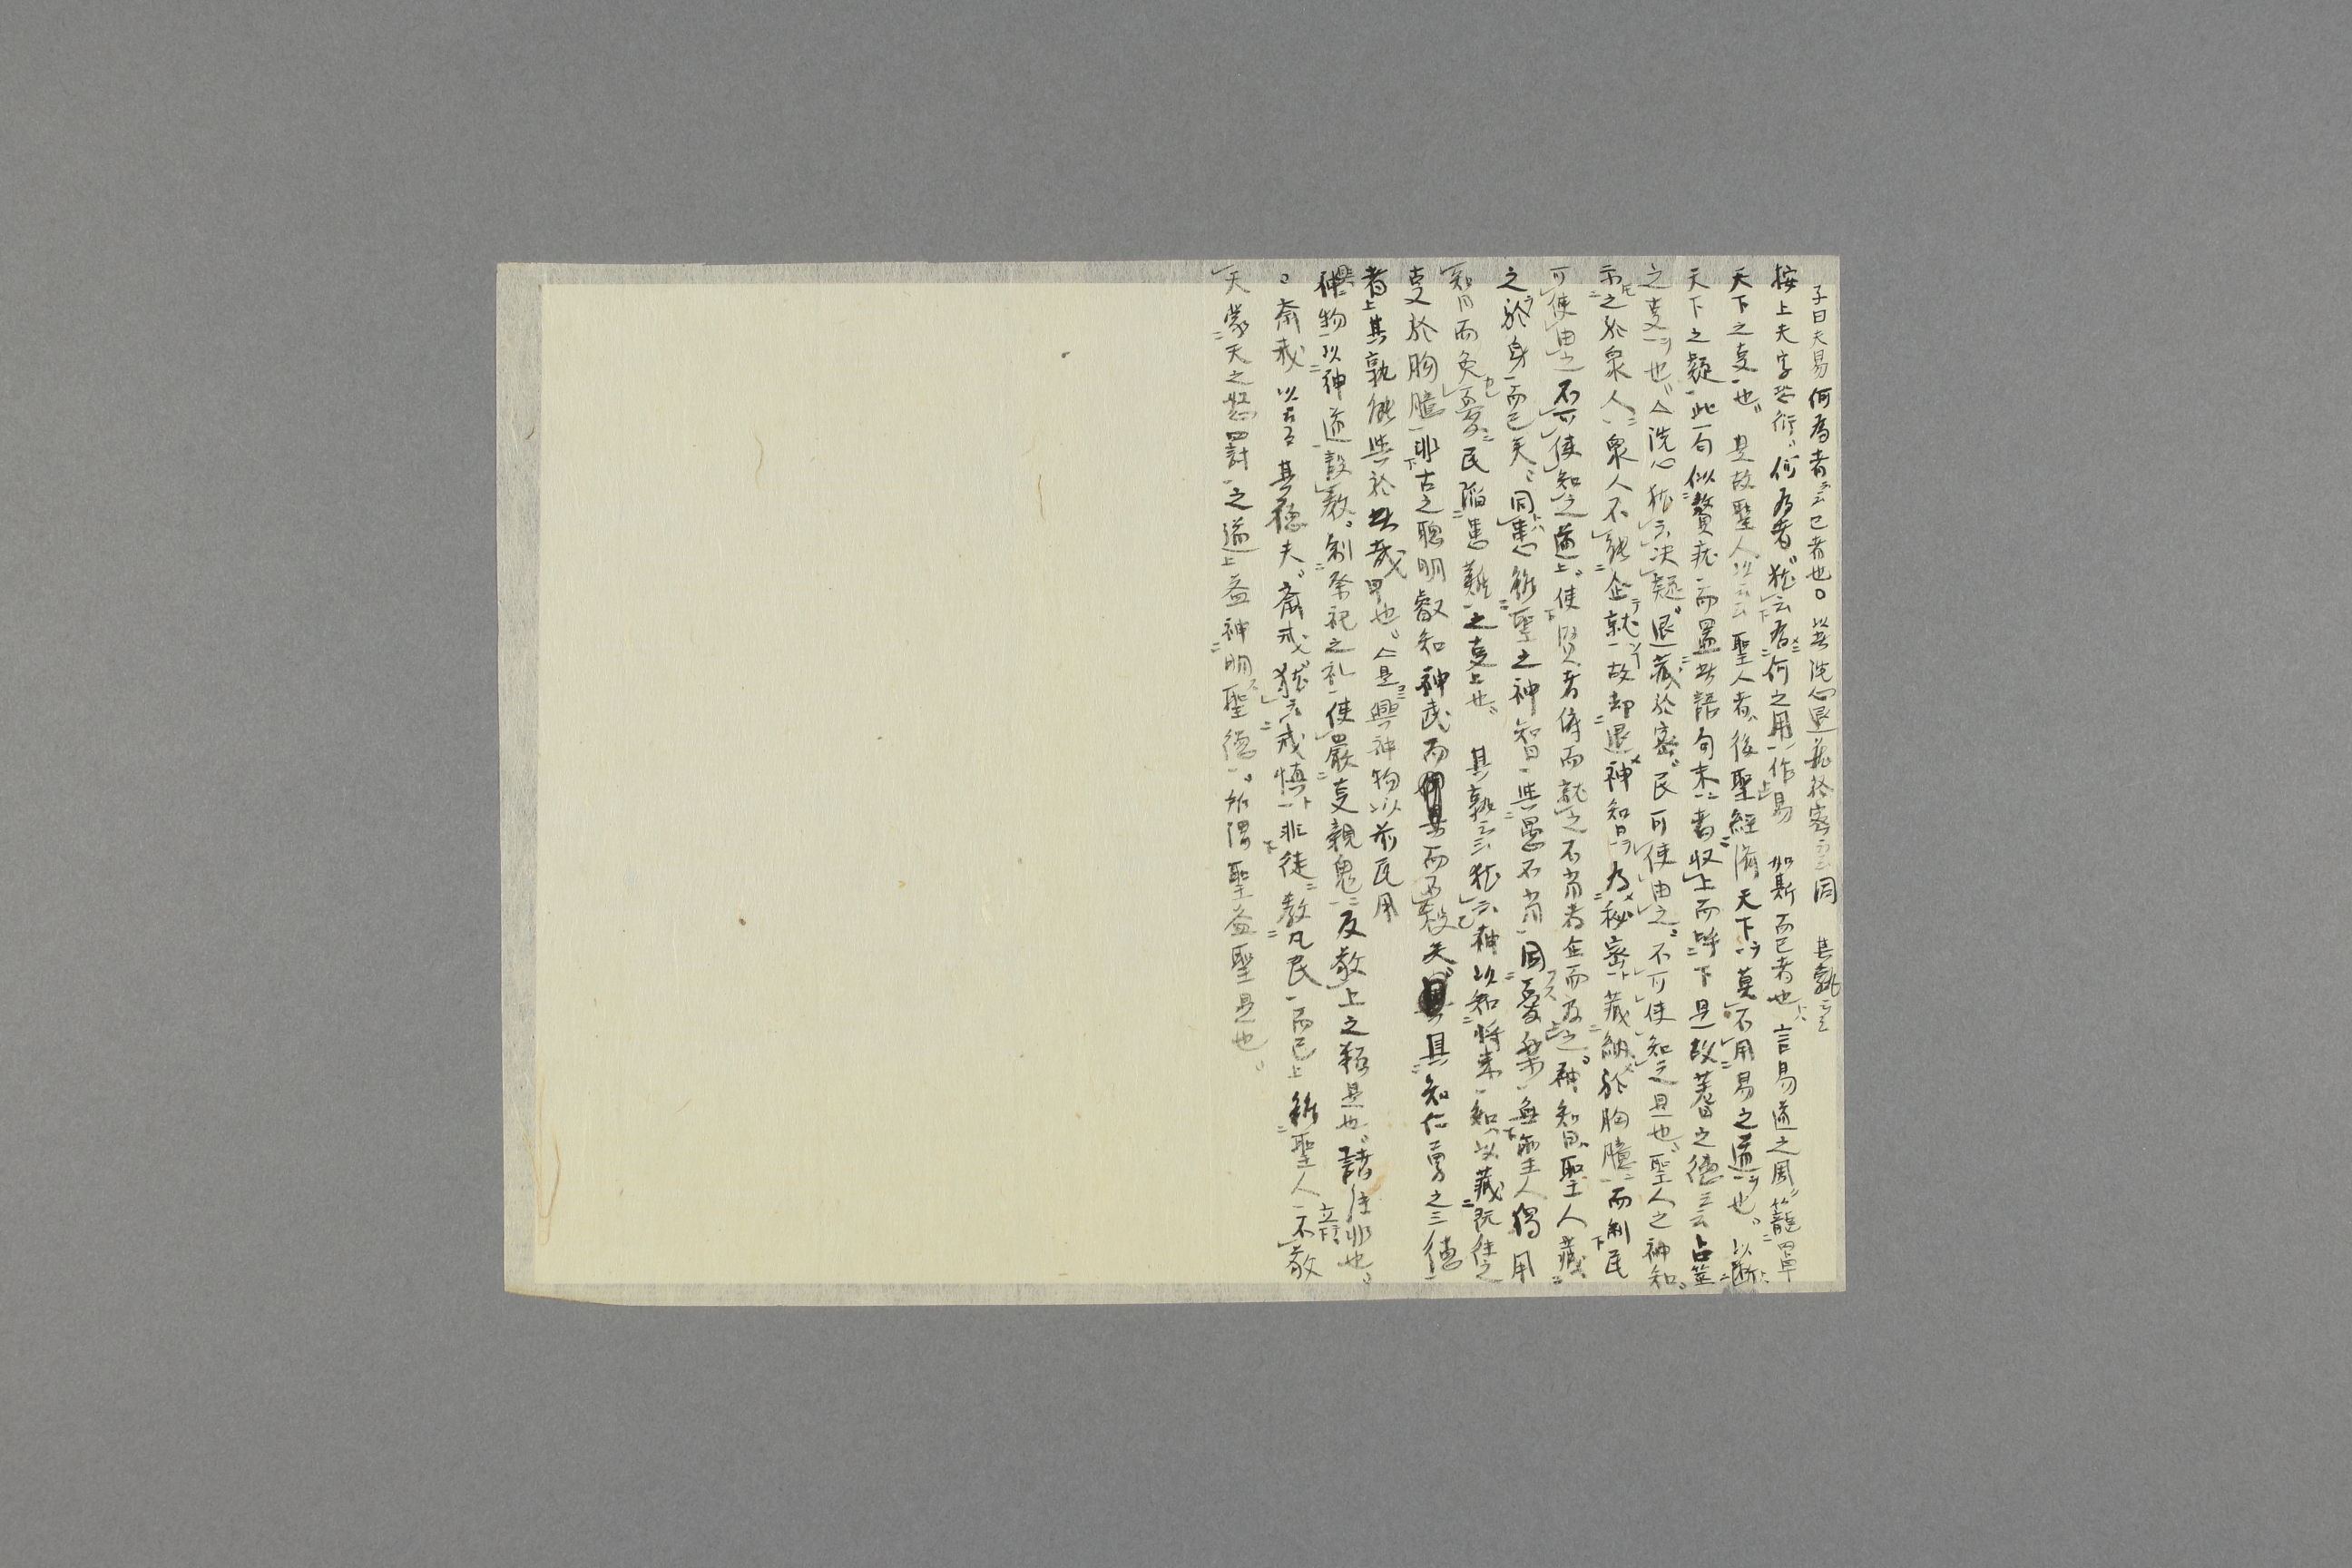 子曰夫易何為者云云已者也○以此洗心退藏於密云云同 其孰云云
按上夫字恐衍、何為者、猶云為何之用作易 如斯而已者也 言易道之周籠罩
天下之事也、 是故聖人以云云 聖人者、後聖經濟天下莫不用易之道也、以斷
天下之疑 此一句似贅疣而置此語句末者收上而呼下 是故蓍之德云云占筮
之事也、△洗心猶云決疑、退藏於密、民可使由之、不可使知之是也、聖人之神知、
示之於衆人、衆人不能企就、故却退神知為秘密藏納於胸臆而制民
可使由之不可使知之道、使賢者俯而就之不肖者企而及之、神知、聖人藏
之於身而已矣、同患 能聖之神智與愚不肖同憂樂 無聖人獨用
智而灸憂民陷患難之事也、 其孰云云猶云神以知將來知以藏既往之
事於胸臆非古之聰明叡知神武而不殺夫具知仁勇之三德
者其孰能與於此哉也、△是興神物以前民用
神物以神道設教、制祭祀之礼使嚴事親鬼反敬上之類是也、諸注非也、
○斎戒以云云其德夫、斎戒、猶云戒慎非徒教凡民而已 能聖人不敬
天蒙天之怒罰之道益神明聖德、所謂聖益聖是也、